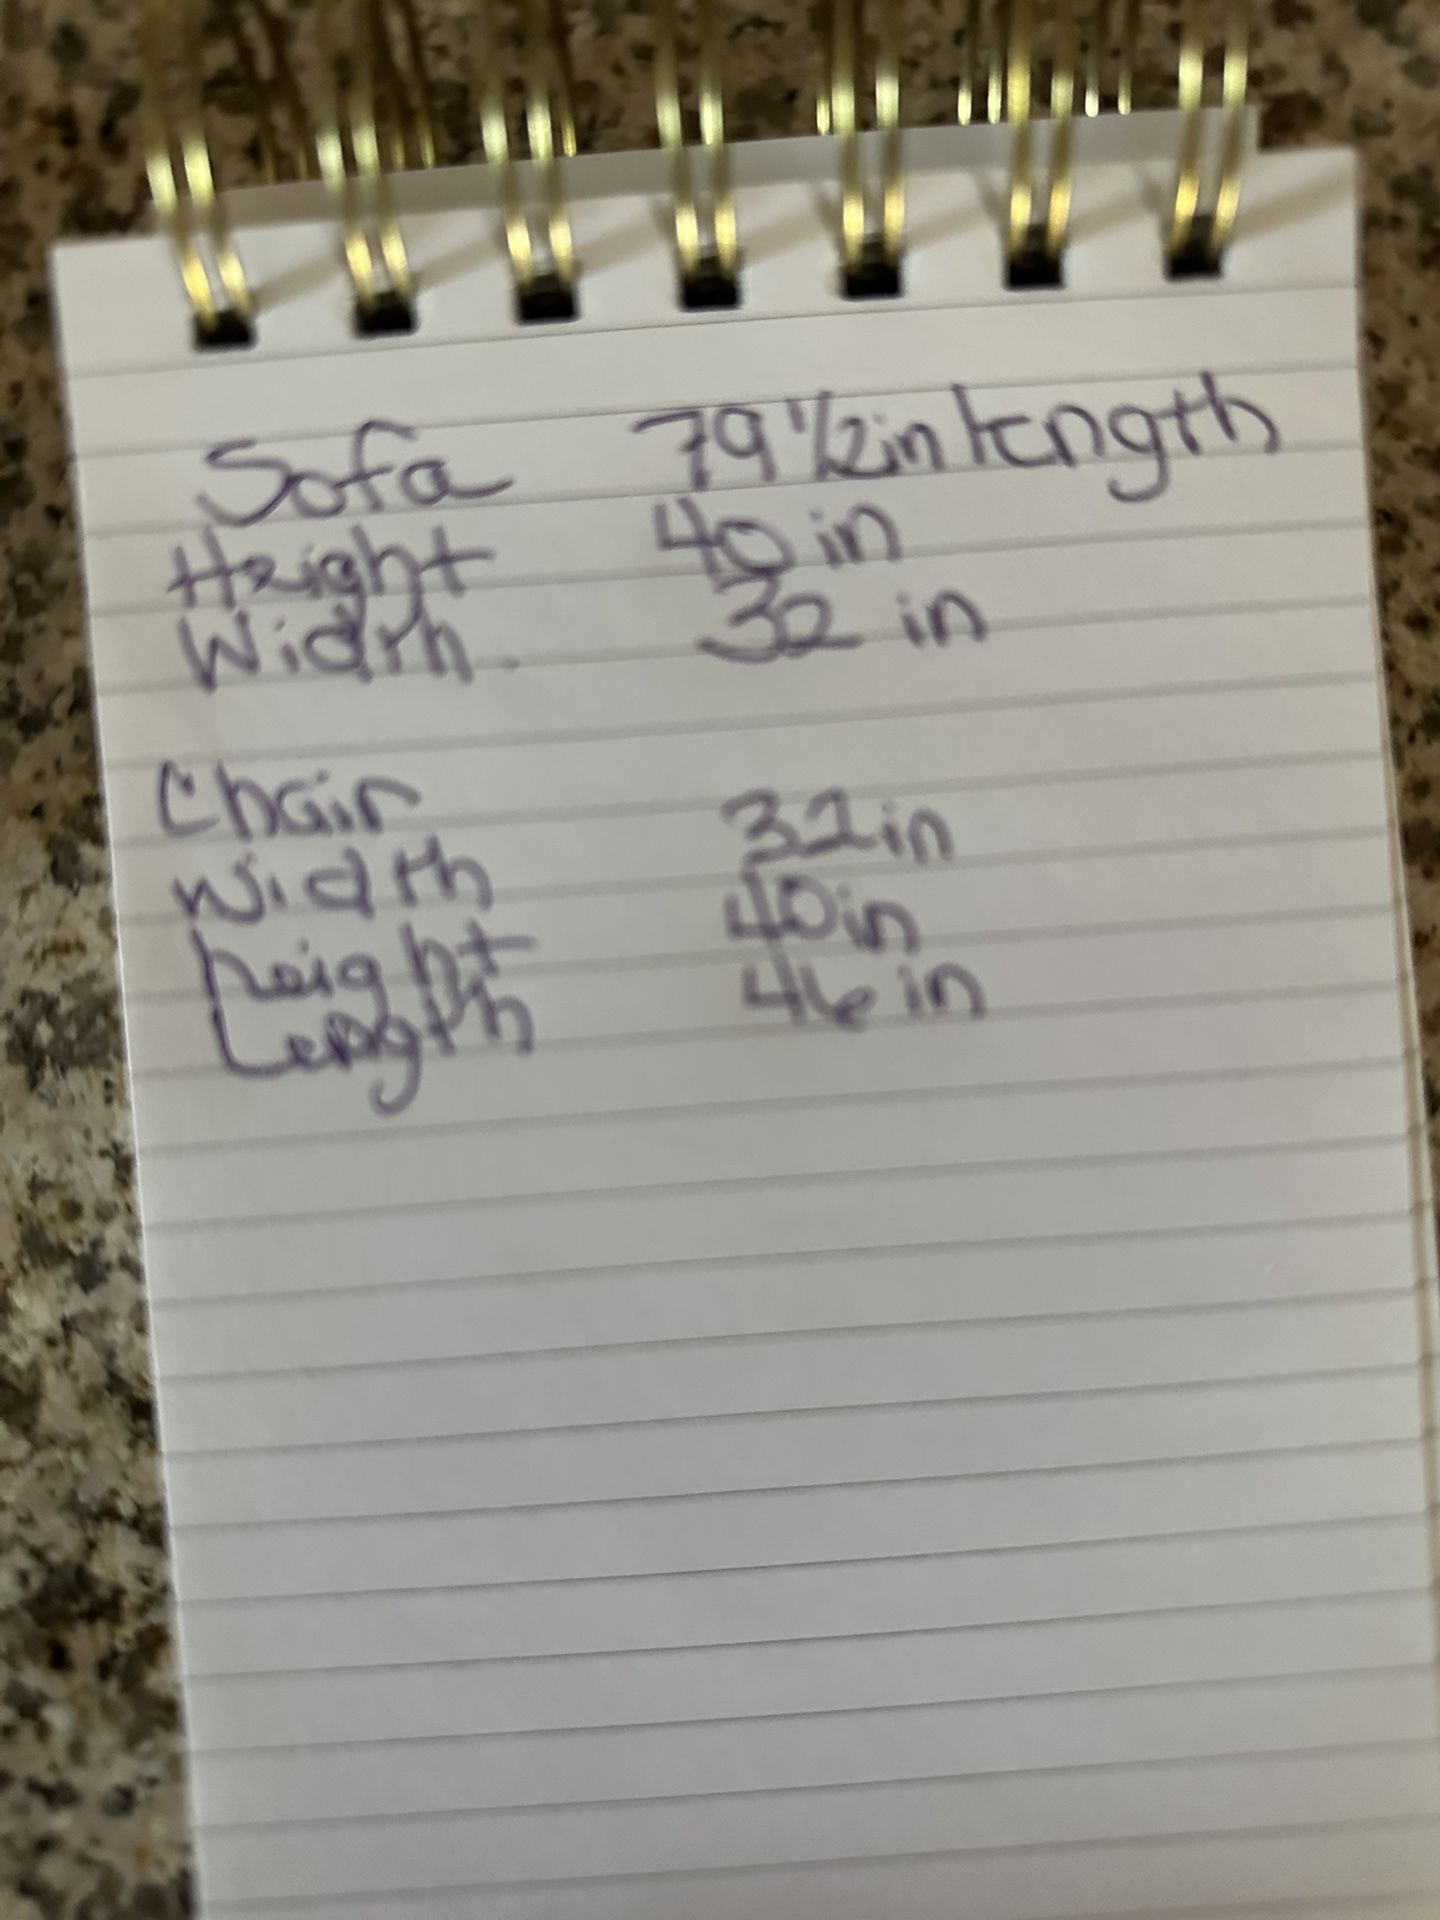 Sofa 79 1/2in length
Height 40 in
Width. 32 in
Chair
Width 32in
height 40in
Length 46 in